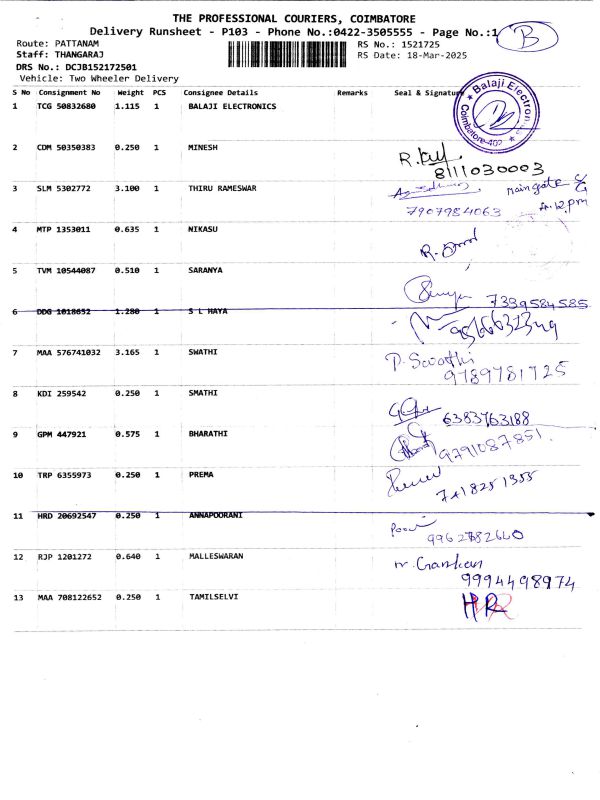 THE PROFESSIONAL COURIERS, COIMBATORE
Delivery Runsheet - P103 - Phone No.:0422-3505555 - Page No.:1 B
Route: PATTANAM RS No.: 1521725
Staff: THANGARAJ RS Date: 18-Mar-2025
DRS No.: DCJB152172501
Vehicle: Two Wheeler Delivery
S No Consignment No Weight PCS Consignee Details Remarks Seal & Signature
1 TCG 50832680 1.115 1 BALAJI ELECTRONICS
Balaji Electron
Coimbatore-402
2 CDM 50350383 0.250 1 MINESH
8111030003
3 SLM 5302772 3.100 1 THIRU RAMESWAR
main gate
7907984063 12.pm
4 MTP 1353011 0.635 1 NIKASU
5 TVM 10544087 0.510 1 SARANYA
7339584585
6 DDG 1018652 1.280 1 S L HAYA
7 MAA 576741032 3.165 1 SWATHI
P. Swathi
9789781725
8 KDI 259542 0.250 1 SMATHI
6383763188
9 GPM 447921 0.575 1 BHARATHI
9791087851.
10 TRP 6355973 0.250 1 PREMA
7418251355
11 HRD 20692547 0.250 1 ANNAPOORANI
9962782660
12 RJP 1201272 0.640 1 MALLESWARAN
9994498974
13 MAA 708122652 0.250 1 TAMILSELVI
HR